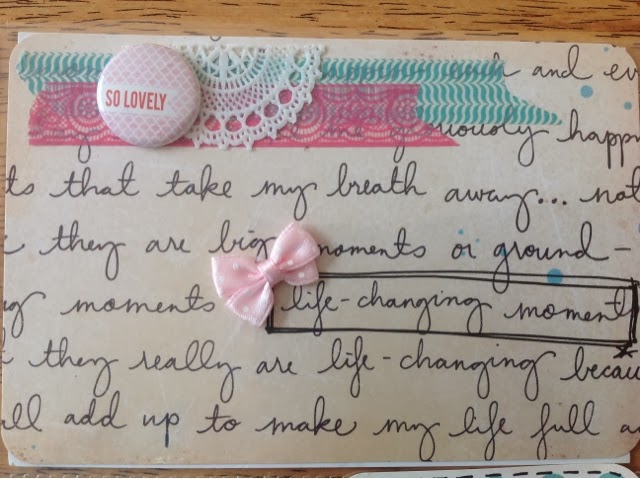 and ev
SO LOVELY
happ
ts that take my breath away... not
they are big moments or ground-
moments life-changing moment
they really are life-changing becau
all add up to make my life full a